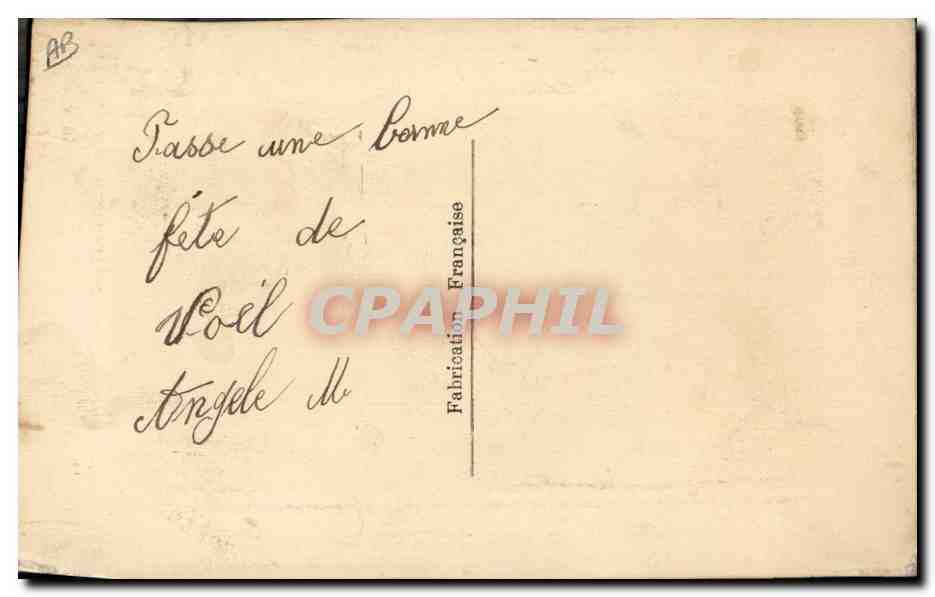 AB
Passe une bonne
fête de
Noël
Angele M
Fabrication Française
CPAPHIL